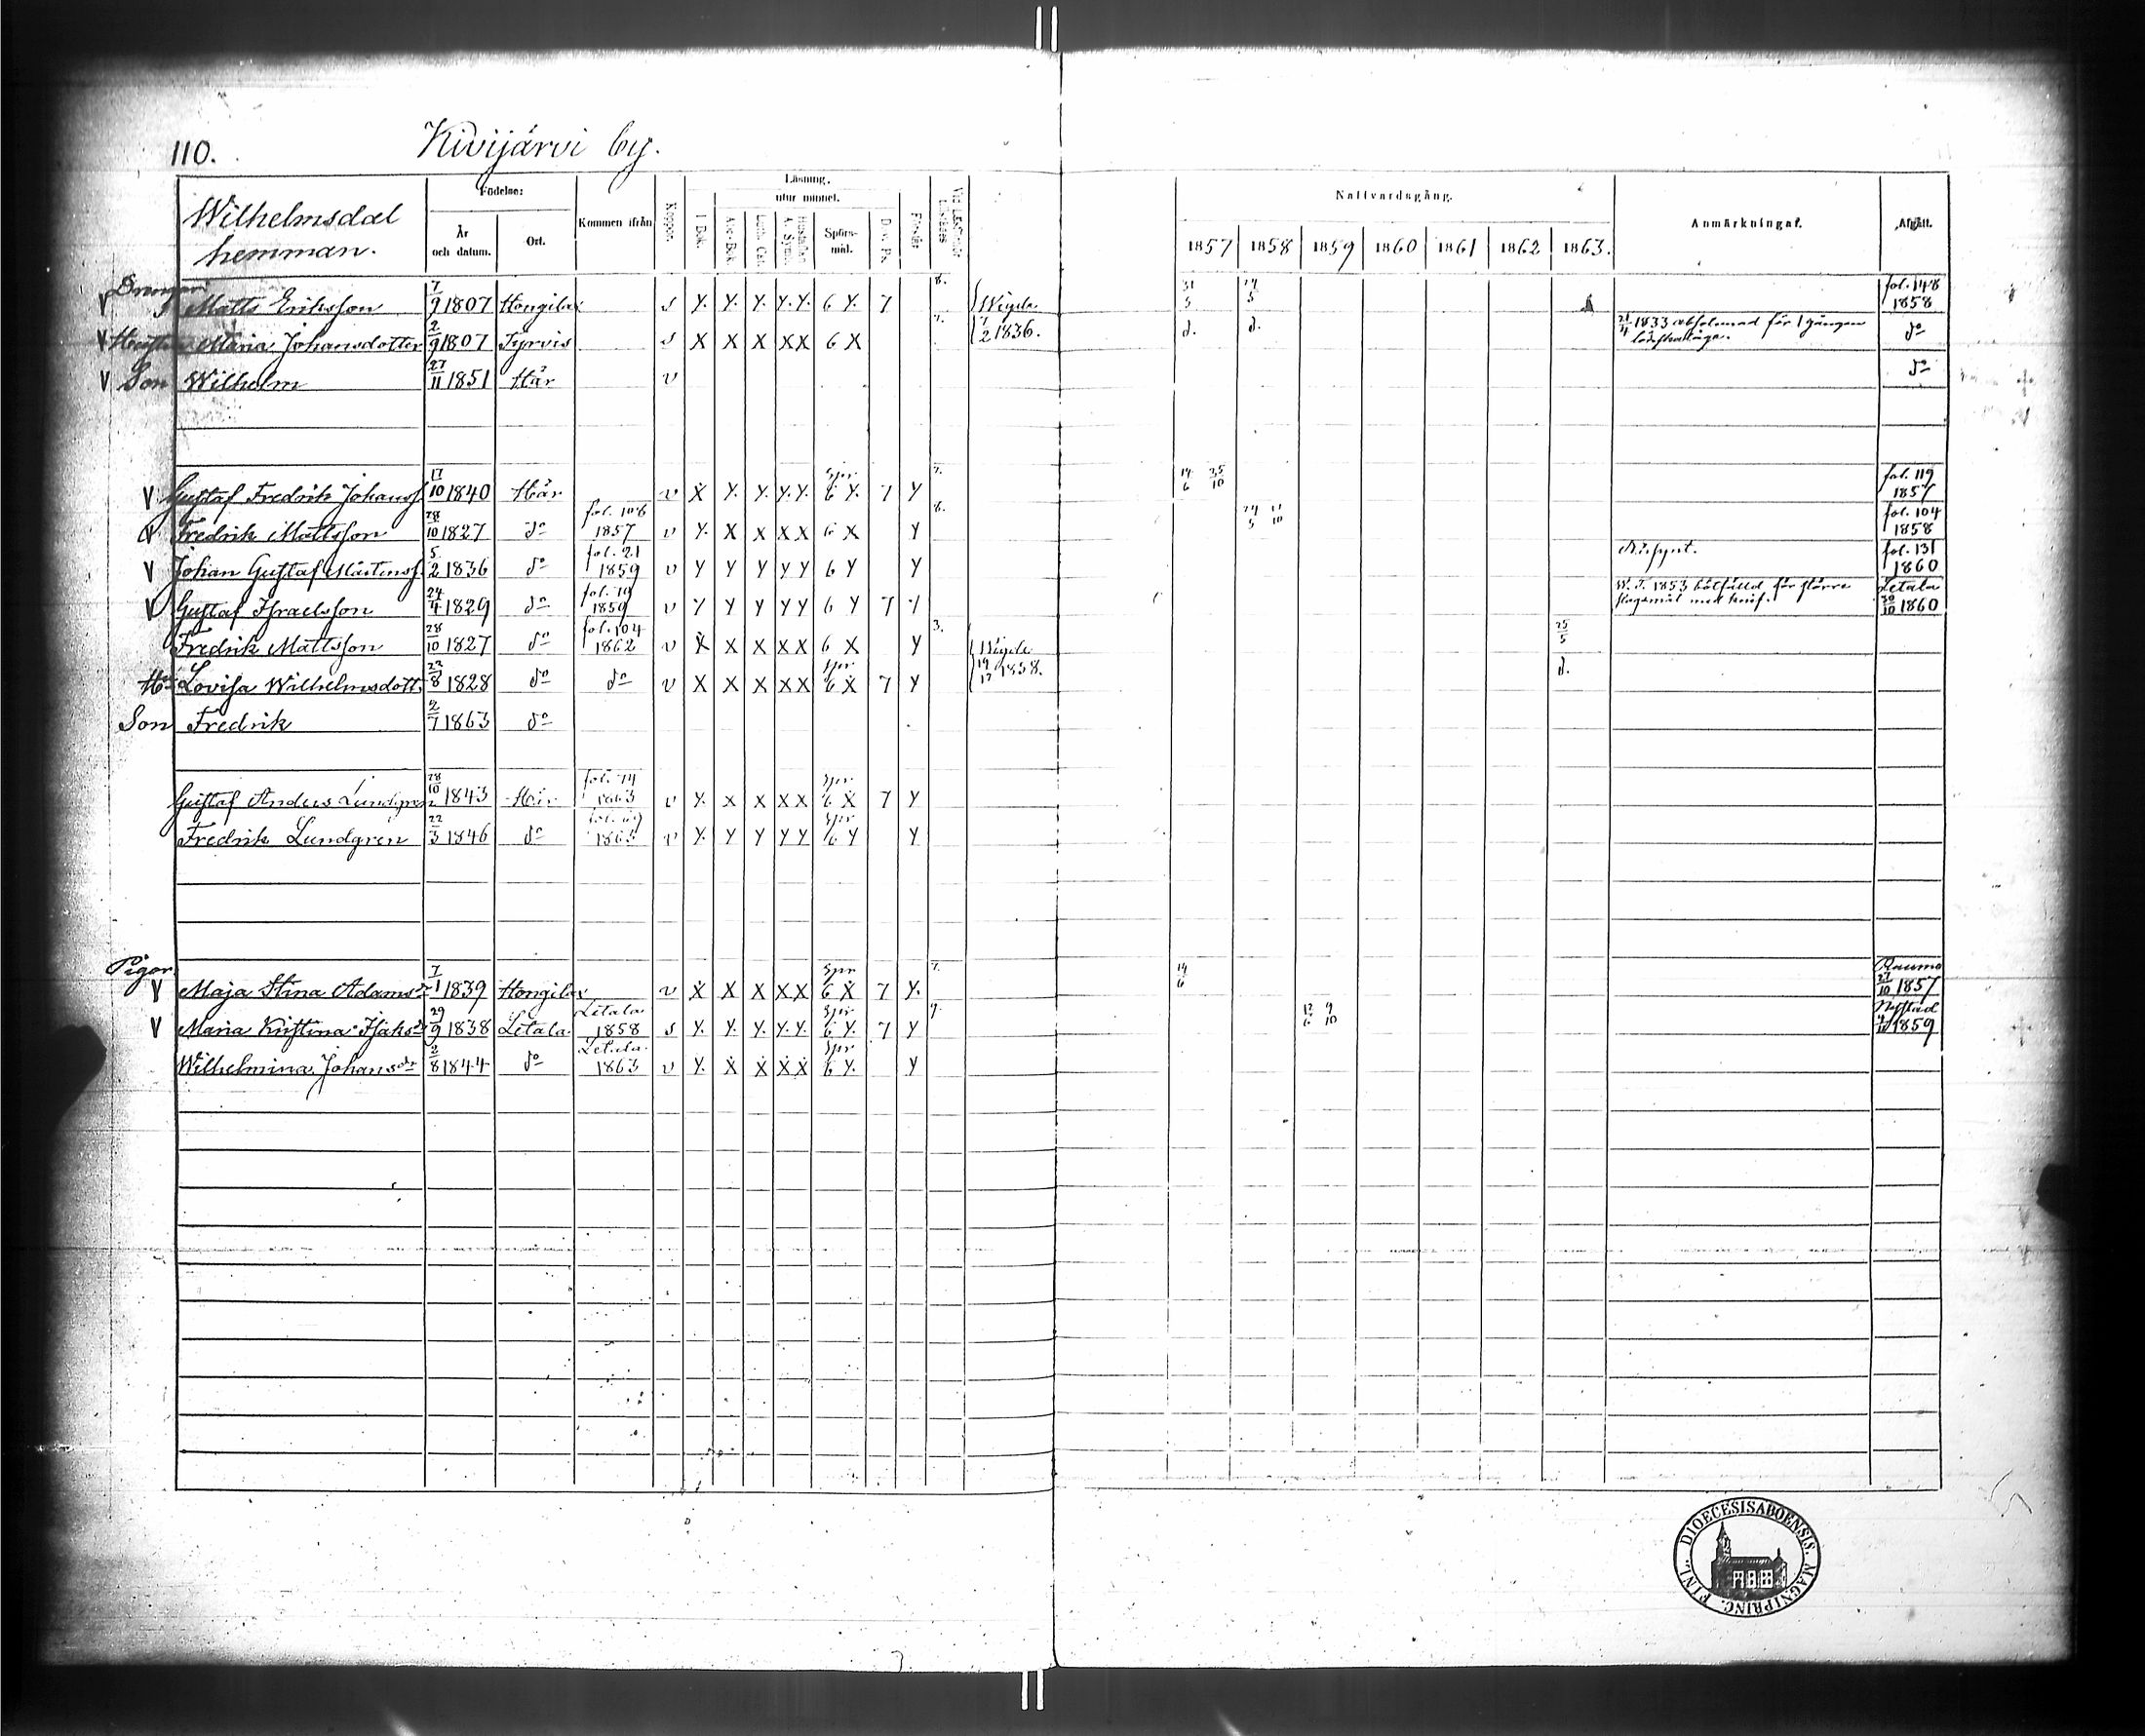 110. Kivijärvi by.
Wilhelmsdal hemman.
Födelse: År och datum. Ort. Kommen ifrån Koppor. Läsning. I Bok. utur minnet. Spörsmål.
Nattvardsgång. 1857 1858 1859 1860 1861 1862 1863. Anmärkningar. Afgått.
Drengar
V Matts Eriksson 7/9 1807 Hongilax s Y. Y. Y. Y. Y. 6 Y. 7 8. Wigde 31/5 24/5 fol. 148 1858
V Hustru Maria Johansdotter 2/9 1807 Tyrvis s X X X X X 6 X 7. 1836. d. d. 1833 absolverad för 1 gången d:o
V Son Wilhelm 27/11 1851 Här v d:o
V Gustaf Fredrik Johanss. 17/10 1840 Här v X Y. Y. Y. Y. Spr 6 Y. 7 Y 7. 14/6 25/10 fol. 119 1857
V Fredrik Mattsson 28/10 1827 d:o fol. 108 1857 v Y. X X X X 6 X Y 8. fol. 104 1858
V Johan Gustaf Mårtenss. 5/2 1836 d:o fol. 21 1859 v Y Y Y Y Y 6 Y Y fol. 131 1860
V Gustaf Israelsson 24/4 1829 d:o 1859 v Y Y Y Y Y 6 Y 7 Y W. T. 1853 botfälld för större slagsmål med knif. Letala 30/10 1860
Fredrik Mattsson 28/10 1827 d:o fol. 104 1862 v X X X X X 6 X Y 3. Wigde 25/5
Lovisa Wilhelmsdott. 22/8 1828 d:o d:o v X X X X X Spr 6 X 7 Y 1858. d.
Son Fredrik 2/7 1863 d:o
Gustaf Anders Lundgren 28/10 1843 Här 1863 v Y. X X X X Spr 6 X 7 Y
Fredrik Lundgren 22/3 1846 d:o 1863 v Y. Y Y Y Y Spr 6 Y Y
Pigor.
V Maja Stina Adamsdr 7/1 1839 Hongilax v X X X X X Spr 6 X 7 Y. 7. 14/6 Raumo 27/10 1857
V Maria Kristina Isaksdr 29/9 1838 Letala. Letala 1858 s Y. Y. Y. Y. Y. Spr 6 Y. 7 Y 9. 12/6 9/10 Nystad 1859
Wilhelmina Johansdr 2/8 1844 d:o Letala 1863 v Y. X X X X Spr 6 Y. Y
DIOECESIS ABOENSIS. MAGNI PRINC. FINL.